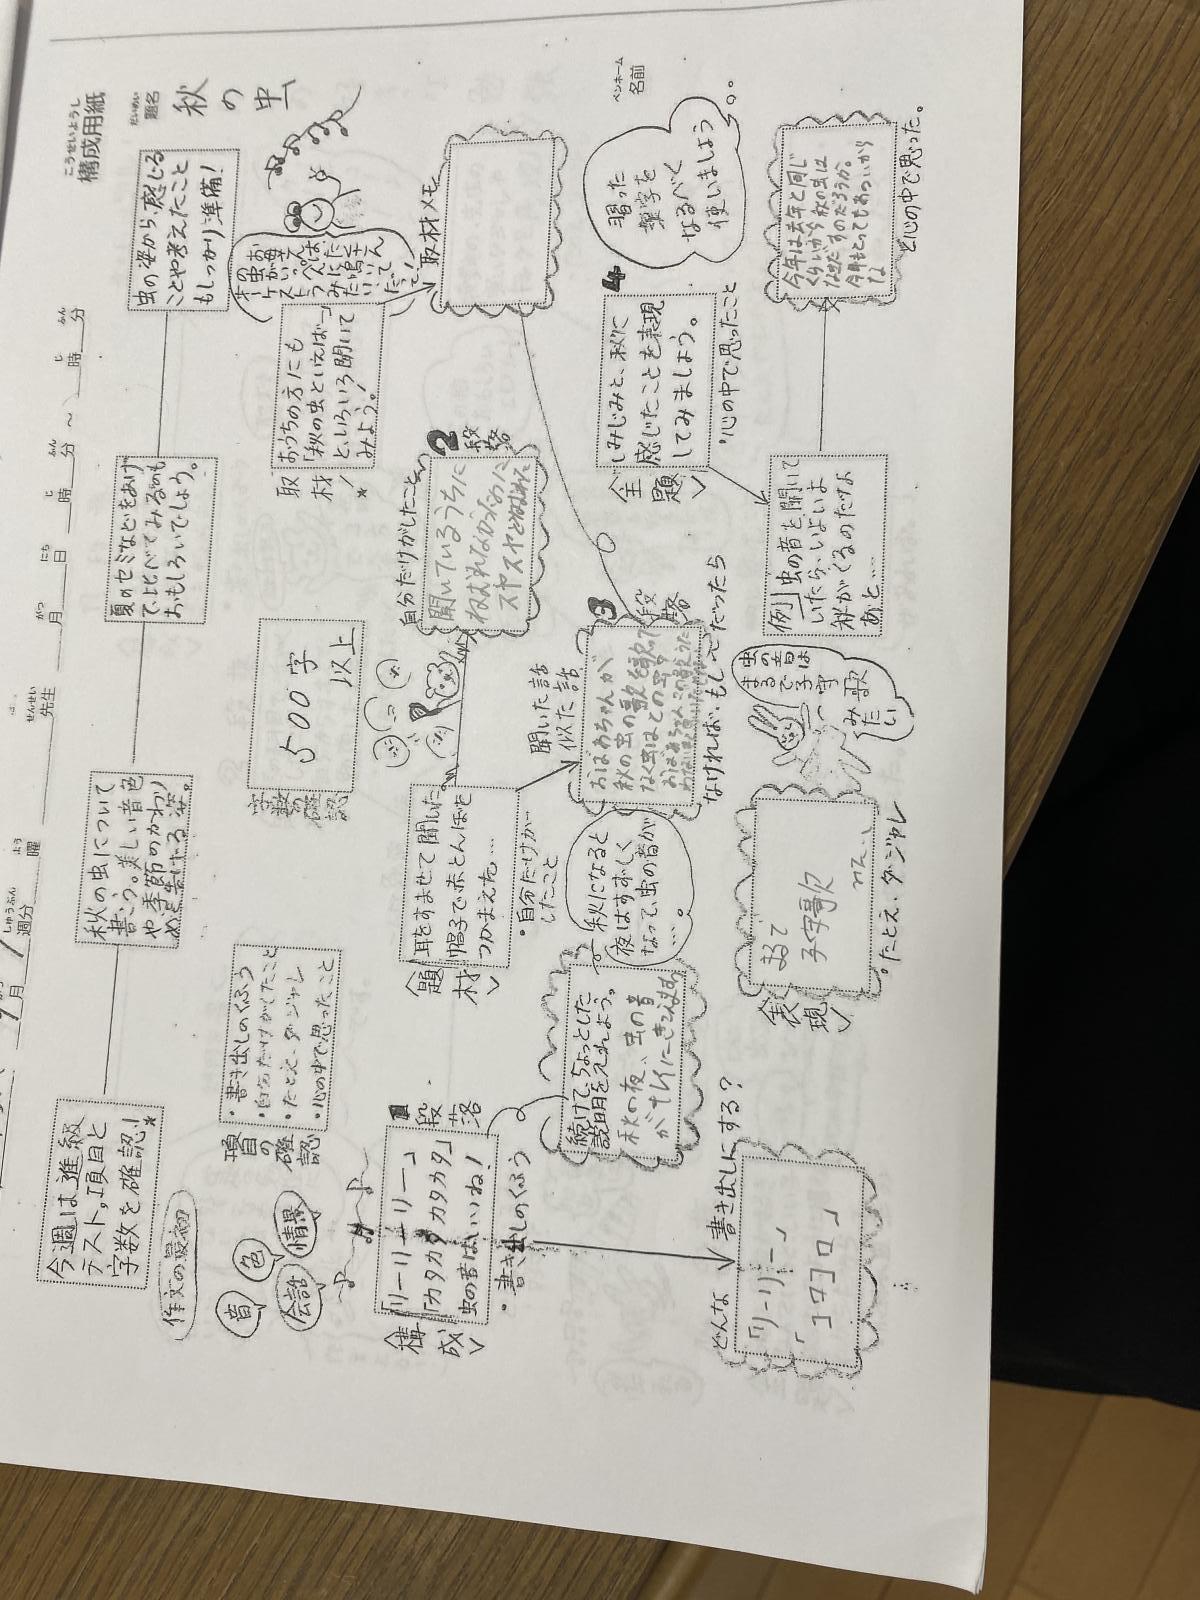 構成用紙
こうせいようし
題名
だいめい
秋の虫
ペンネーム
名前
月
週分
しゅうぶん
曜
よう
先生
せんせい
月
がつ
日
にち
時
じ
分
ふん
～
時
じ
分
ふん
今週は進級
テスト。項目と
字数を確認！
秋の虫について
書こう。美しい音色
や季節のかわり
めを告げる姿。
夏のセミなどをあげ
て比べてみるのも
おもしろいでしょう。
虫の姿から、感じる
ことや考えたこと
もしっかり準備！
作文の最初
音
色
会話
情景
項目の確認
・書き出しのくふう
・自分だけがしたこと
・たとえ・ダジャレ
・心の中で思ったこと
字数の確認
500字
以上
取材！
おうちの方にも
「秋の虫といえば…」
と、いろいろ聞いて
みよう！
取材メモ
〈構成〉
1段落
「リーリーリー」
「カタカタカタカタ」
虫の音はいいね！
・書き出しのくふう
どんな書き出しにする？
「リーリリー」
「コロコロ」
続けて、ちょっとした
説明をいれよう。
秋の夜、虫の音
がキレイにきこえます
秋になると
夜はすずしく
なって、虫の音が
……。
〈題材〉
耳をすませて聞いた
帽子で赤とんぼを
つかまえた…
・自分だけが
したこと
自分だけがしたこと
2段落
聞いているうちに
ねむれなかったのに
スヤスヤとねむれた
聞いた話
似た話
3段落
おばあちゃんが
秋の虫の歌を歌って
なく虫はどの虫？
なければ・もし〜だったら
〈表現〉
まるで
子守歌
みたい
・たとえ・ダジャレ
虫の音は
まるで子守
歌
みたい
〈主題〉
4
しみじみと、秋に
感じたことを表現
してみましょう。
・心の中で思ったこと
例
虫の音を聞いて
いたら、いよいよ
秋がくるのだなよ
あと…
今年は去年と同じ
くらいから秋の虫は
なきだすのだろうか。
今年もとってもあついから
な
と心の中で思った。
習った
漢字を
なるべく
使いましょう